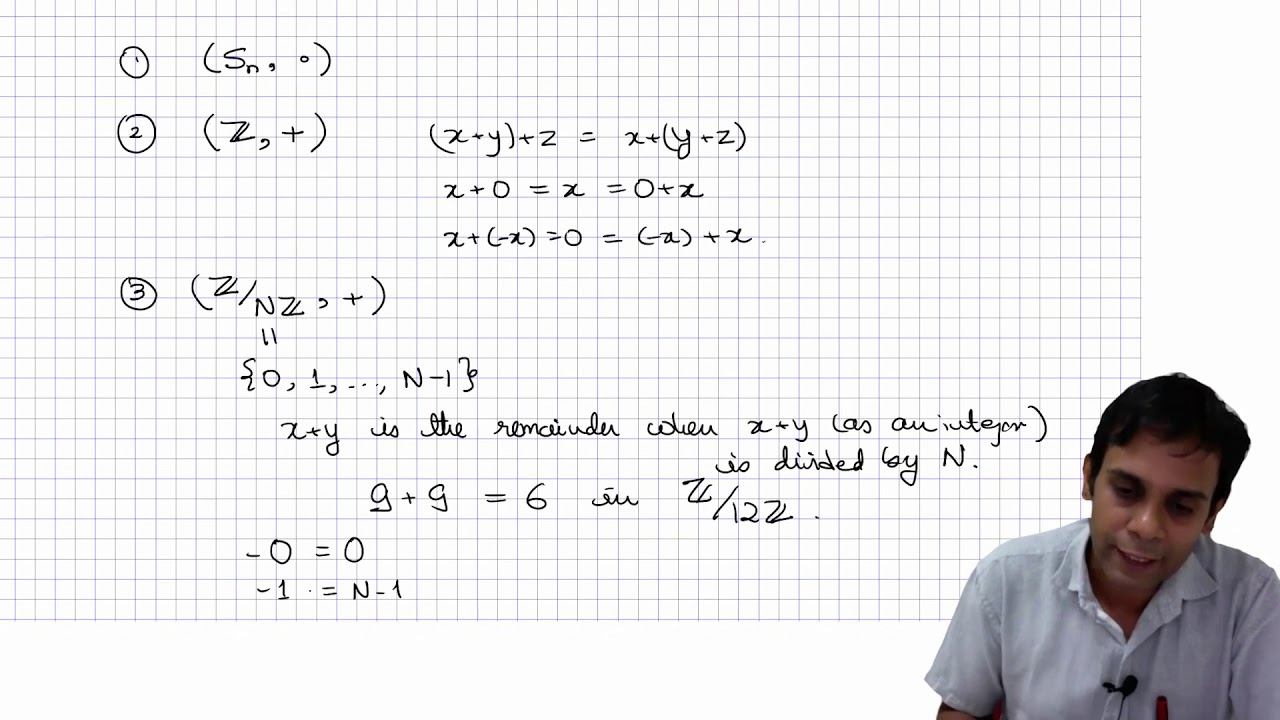 ① (Sₙ, ∘)
② (ℤ, +) (x+y)+z = x+(y+z)
x+0 = x = 0+x
x+(-x)=0 = (-x)+x.
③ (ℤ/Nℤ, +)
=
{0, 1, ..., N-1}
x+y is the remainder when x+y (as an integer)
is divided by N.
9+9 = 6 in ℤ/12ℤ.
-0 = 0
-1 = N-1